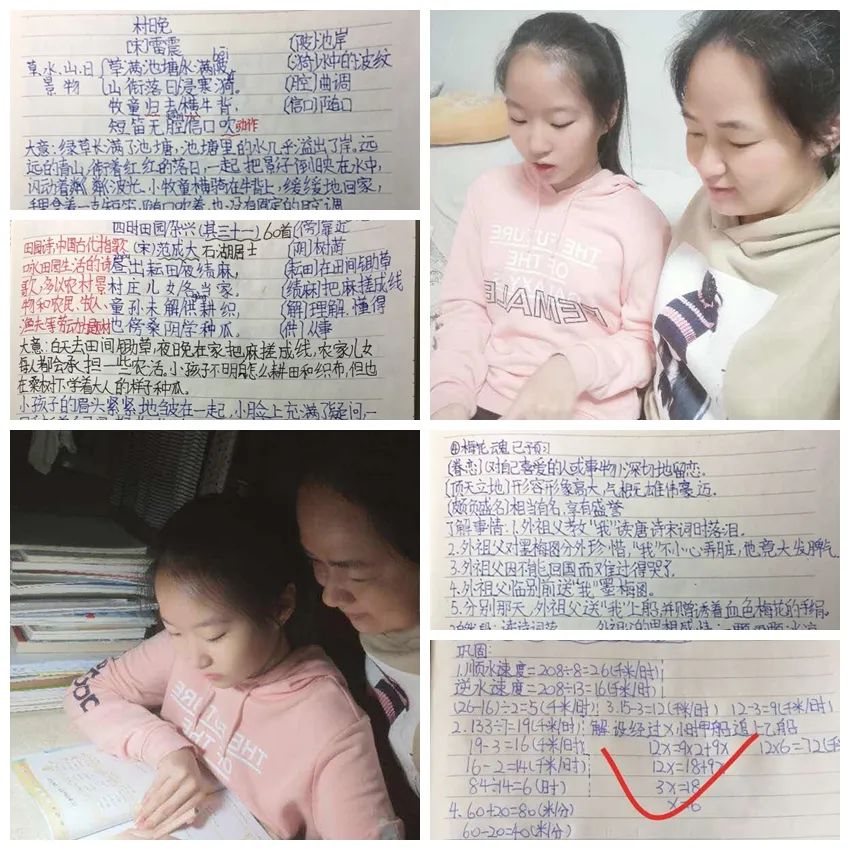 村晚
[宋]雷震
草、水、山、日
景物
草满池塘水满陂
bēi
山衔落日浸寒漪。
牧童归去横牛背,
短笛无腔信口吹
动作
[陂]池岸
[漪]水中的波纹
[腔]曲调
[信口]随口
大意:绿草长满了池塘,池塘里的水几乎溢出了岸。远
远的青山,衔着红红的落日,一起把影子倒映在水中,
闪动着粼粼波光。小牧童横骑在牛背上,缓缓地回家,
四时田园杂兴(其三十一)60首
(宋)范成大 石湖居士
昼出耘田夜绩麻,
村庄儿女各当家。
童孙未解供耕织,
也傍桑阴学种瓜。
田园诗,中国古代指歌
咏田园生活的诗
歌,多以农村景
物和农民、牧人、
渔夫等劳动为题材
[傍]靠近
[阴]树荫
[耘田]在田间锄草
[绩麻]把麻搓成线
[解]理解,懂得
大意:白天去田间锄草,夜晚在家把麻搓成线,农家儿女
每人都会承担一些农活,小孩子不明白怎么耕田和织布,但也
在桑树下,学着大人的样子种瓜。
小孩子的眉头紧紧地皱在一起,小脸上充满了疑问,一
THE FUTURE
OF THE
GALAXY IS
FEMALE
THE FUTURE
④梅花魂 已预习
[眷恋]对自己喜爱的人或事物深切地留恋。
[顶天立地]形容形象高大,气概雄伟豪迈。
[颇负盛名]相当有名,享有盛誉
了解事情:1.外祖父教“我”读唐诗宋词时落泪。
2.外祖父对墨梅图分外珍惜,“我”不小心弄脏,他竟大发脾气
3.外祖父因不能回国而难过得哭了.
4.外祖父临别前送“我”墨梅图。
5.分别那天,外祖父送“我”上船,并赠透着血色梅花的手绢。
巩固:
1.顺水速度=208÷8=26(千米/时)
逆水速度=208÷13=16(千米/时)
(26-16)÷2=5(千米/时) 3.15-3=12(千米/时) 12-3=9(千米/时)
2.133÷7=19(千米/时) 解:设经过x小时甲船追上乙船
19-3=16(千米/时) 12x=9x2+9x 12x6=72(千
16-2=14(千米/时) 12x=18+9x
84÷14=6(时) 3x=18
x=6
4.60+20=80(米/分)
60-20=40(米/分)